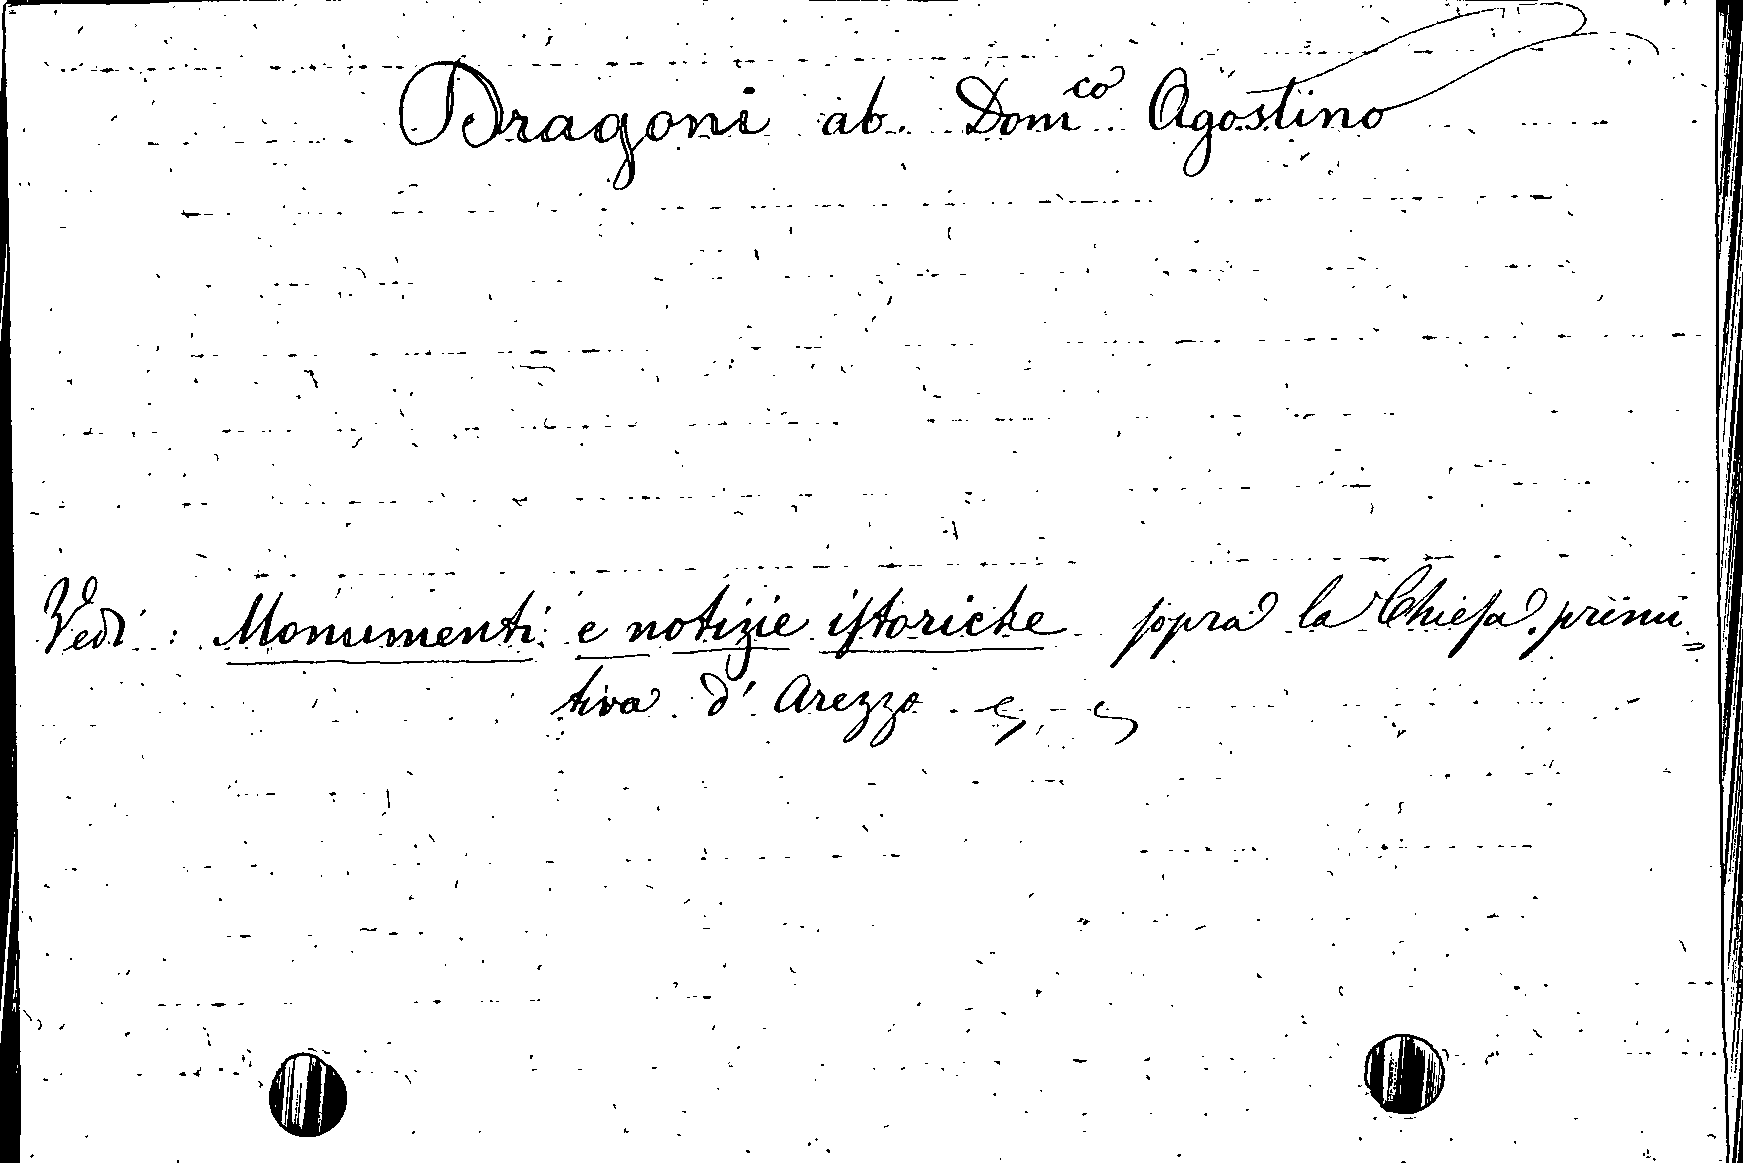 Dragoni ab. Dom.co Agostino
Vedi: Monumenti e notizie istoriche sopra la Chiesa primi=
tiva d'Arezzo